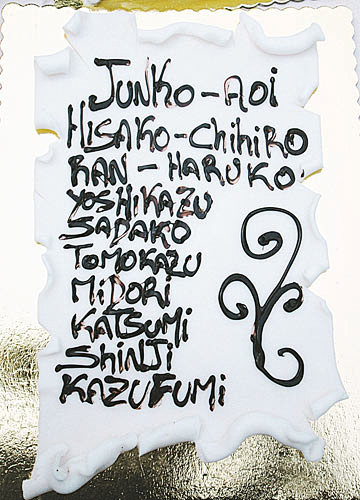 JUNKO-AOi
HISAKO-CHiHiRO
RAN-HARUKO
YOSHIKAZU
SADAKO
TOMOKAZU
MiDORi
KATSUMi
SHINJi
KAZUFUMi